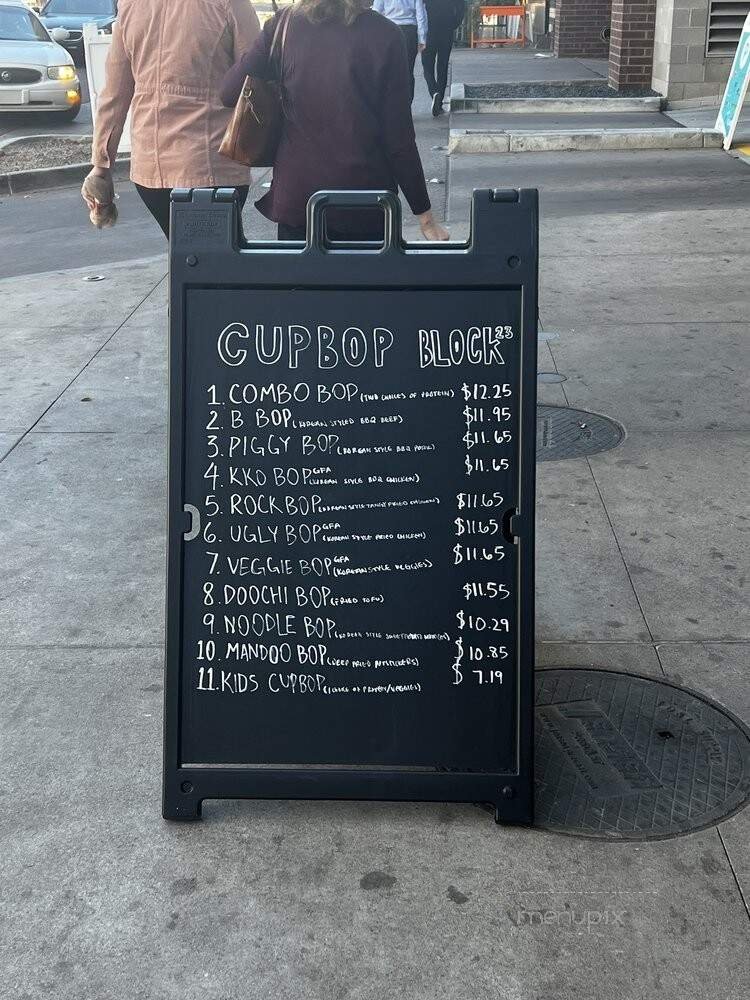 CUPBOP BLOCK 23
1. COMBO BOP (TWO CHOICES OF PROTEIN) $12.25
2. B BOP (KOREAN STYLED BBQ BEEF) $11.95
3. PIGGY BOP (KOREAN STYLE BBQ PORK) $11.65
4. KKO BOP GFA (KOREAN STYLE BBQ CHICKEN) $11.65
5. ROCK BOP (KOREAN STYLE TANGY FRIED CHICKEN) $11.65
6. UGLY BOP GFA (KOREAN STYLE FRIED CHICKEN) $11.65
7. VEGGIE BOP GFA (KOREAN STYLE VEGGIES) $11.65
8. DOOCHI BOP (FRIED TOFU) $11.55
9. NOODLE BOP (KOREAN STYLE SWEET POTATO NOODLES) $10.29
10. MANDOO BOP (DEEP FRIED POTSTICKERS) $10.85
11. KIDS CUPBOP (1 CHOICE OF PROTEIN/VEGGIES) $7.19
menupix